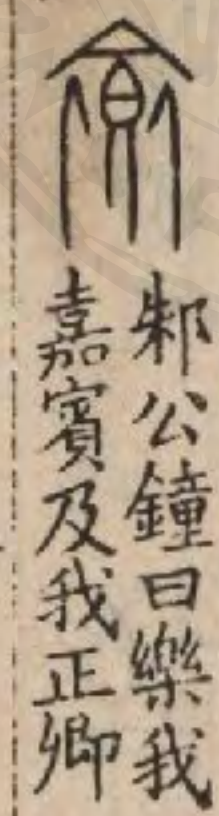 邾公鐘曰樂我
嘉賓及我正卿